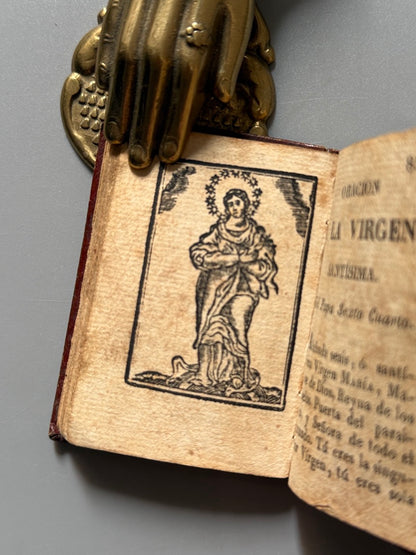 8
ORACION
LA VIRGEN
SANTÍSIMA.
Papa Sexto Cuarto.
seais, ó santí-
Virgen MARÍA, Ma-
de Dios, Reyna de los
Puerta del paraí-
y señora de todo el
Tú eres la singu-
Virgen, tú eres sola